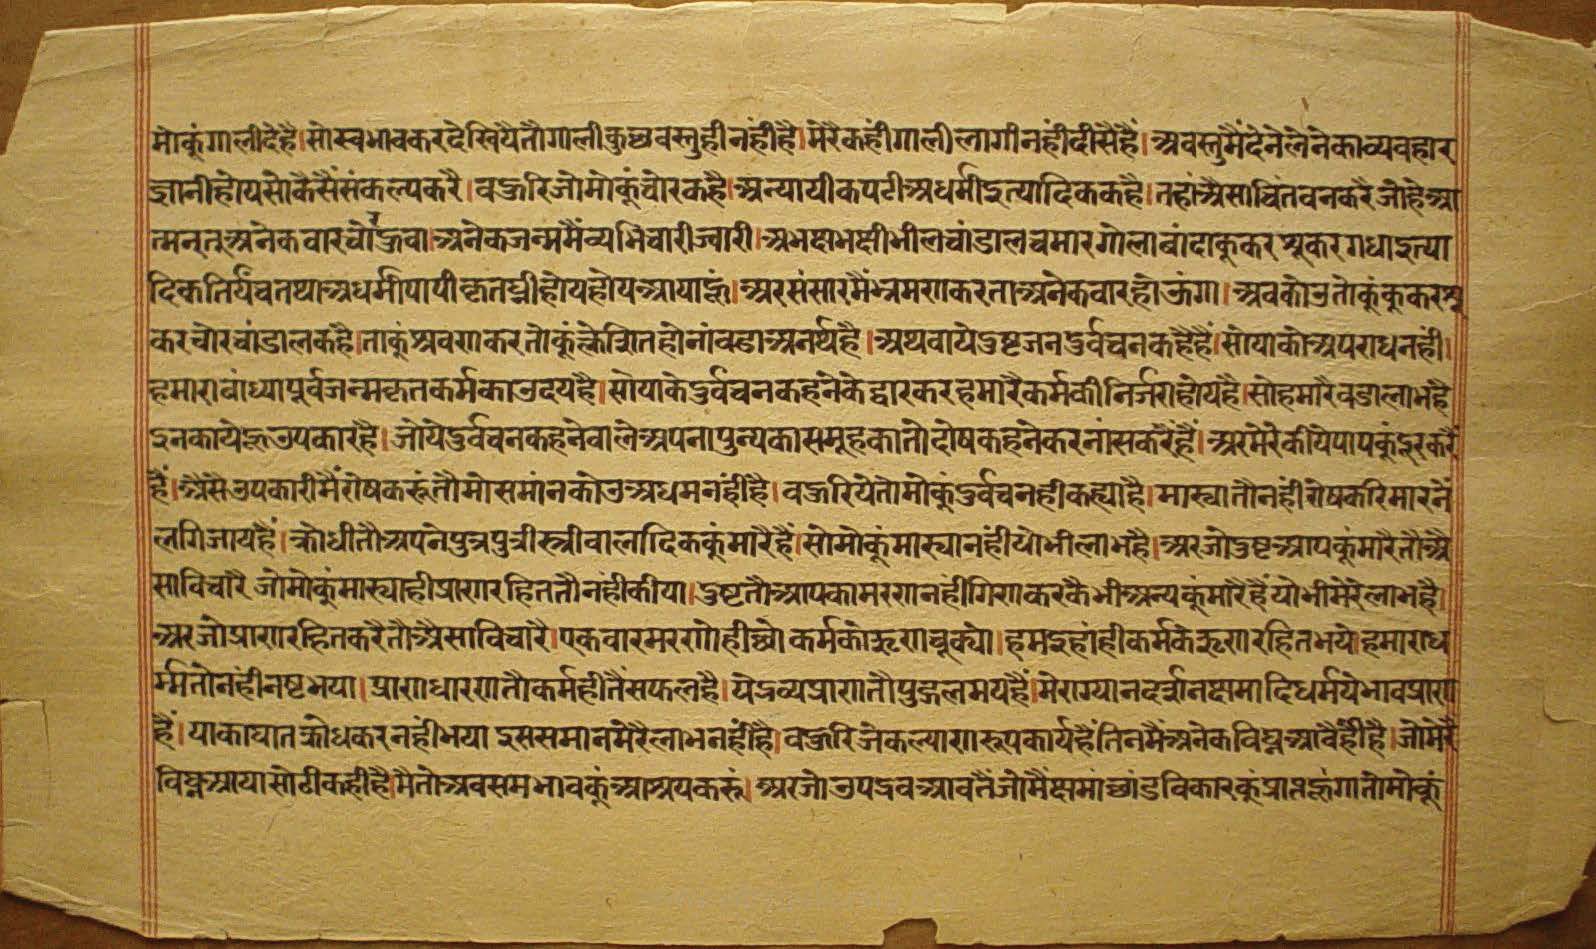 मोकुंगालीदेहै।सोस्वभावकरदेखियैतौगालीकुछवस्तुहीनंहीहै।मेरैकहींगालीलागीनहींदीसैहैं।अवस्तुमैंदेनेलेनेकाव्यवहार
ज्ञानीहोयसोकैसैंसंकल्पकरै।बहुरिजोमोकुंचोरकहै।अन्यायीकपटीअधर्मीइत्यादिककहै।तहांअैसाचिंतवनकरैजोहेआ
त्मन्तुअनेकवारचोरहुवा।अनेकजन्ममैंव्यभिचारीज्वारी।अभक्षभक्षीभीलचांडालचमारगोलाबांदाकुकरशूकरगधाइत्या
दिकतिर्यंचतथाअधर्मीपापीकृतघ्नीहोयहोयआयाहूं।अरसंसारमैंभ्रमणकरताअनेकवारहोऊंगा।अबकोउतोकुंकुकरशू
करचोरचांडालकहै।ताकुंश्रवणकरतोकुंक्लेशितहोनांबडाअनर्थहै।अथवायेदुष्टजनदुर्वचनकहैहैं।सोयाकोअपराधनहीं।
हमाराबांध्यापूर्वजन्मकृतकर्मकाउदयहै।सोयाकेदुर्वचनकहनेकेद्वारकरहमारैकर्मकीनिर्जराहोयहै।सोहमारैबडालाभहै
इनकायेहूउपकारहै।जोयेदुर्वचनकहनेवालेअपनापुन्यकासमूहकातोदोषकहनेकरनांसकरैहैं।अरमेरेकीयेपापकुंदूरकरैं
हैं।अैसैउपकारीमैंरोषकरूंतौमोसमांनकोउअधमनंहीहै।बहुरियेतोमोकुंदुर्वचनहीकह्याहै।मास्यातौनहींरोषकरिमारनें
लगिजायहैं।क्रोधीतौअपनेपुत्रपुत्रीस्त्रीबालादिककुंमारैहैं।सोमोकुंमास्यानहींयोभीलाभहै।अरजोदुष्टआपकुंमारैतौअै
साविचारैजोमोकुंमास्याहीप्राणरहिततौनहींकीया।दुष्टतौआपकामरणनहींगिणकरकैभीअन्यकुंमारैहैंयोभीमेरेलाभहै।
अरजोप्राणरहितकरैतौअैसाविचारै।एकवारमरणोहीछोकर्मकोऋणचुक्यो।हमइहांहीकर्मकेऋणरहितभये।हमाराध
र्म्मतोनहींनष्टभया।प्राणधारणतौकर्महीतैंसफलहै।येद्रव्यप्राणतौपुद्गलमयहैं।मेराग्यानदर्शनक्षमादिधर्मयेभावप्राण
हैं।याकाघातक्रोधकरनहींभयाइससमानमेरैलाभनहींहै।बहुरिजेकल्याणरूपकार्यहैंतिनमैंअनेकविघ्नआवैहींहै।जोमेरै
विघ्नआयासोठीकहीहै।मैतोअबसमभावकुंआश्रयकरूं।अरजोउपद्रवआवतैंजोमैंक्षमाछांडविकारकुंप्राप्तहूंगातोमोकूं